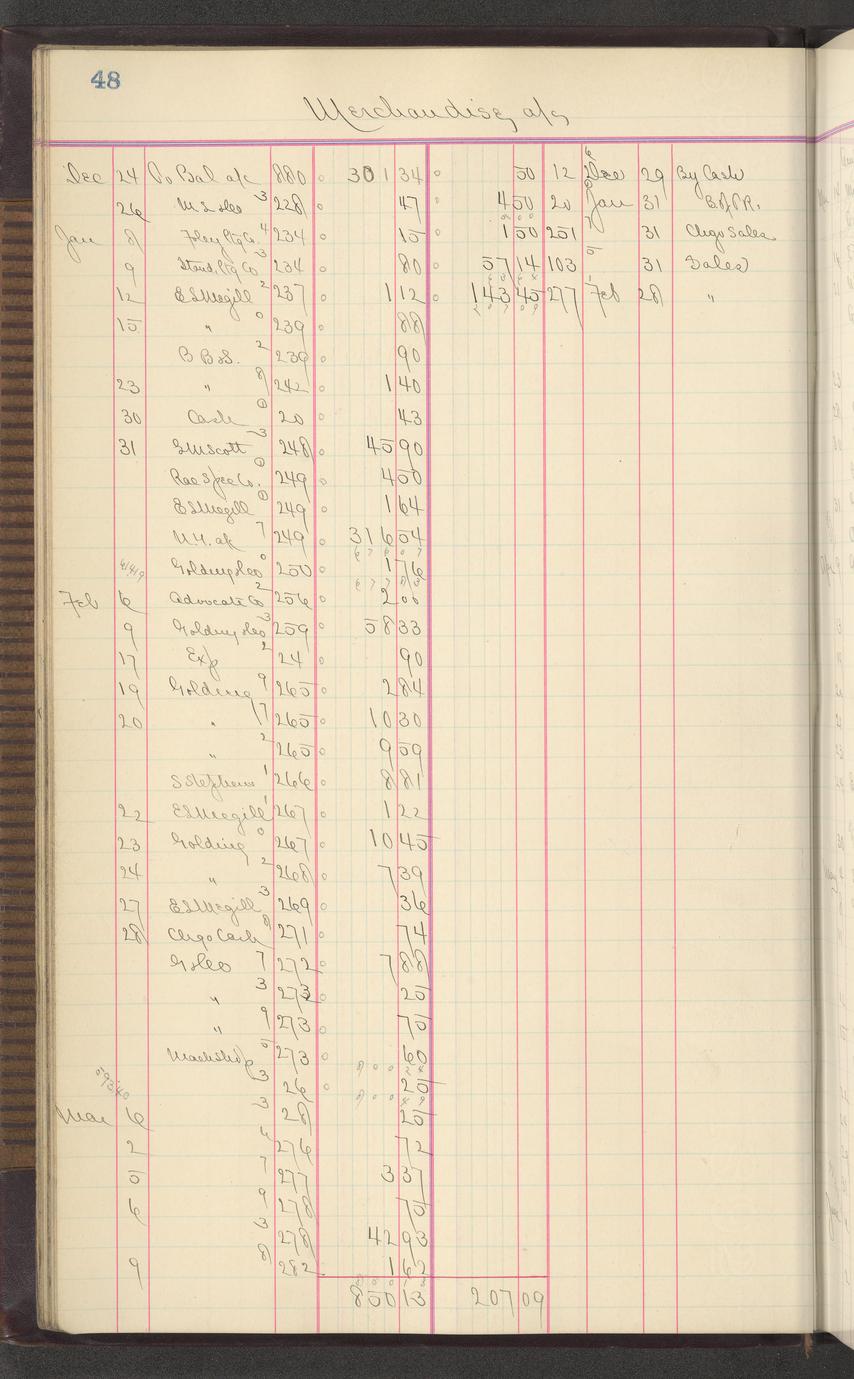 48
Merchandise a/c
Dec 24 To Bal a/c 880 301 34 50 12 Dec 29 By Cash
26 M S & Co 3 228 47 4 50 20 Jan 31 B. of P. R.
Jan 8 Foley Ptg Co. 4 234 15 1 50 251 31 Chgo Sales
9 Stand. Ptg Co 3 234 80 57 14 103 31 Sales
12 E S Megill 2 237 1 12 143 45 277 Feb 28 "
15 " 0 239 88
B B & S. 2 239 90
23 " 8 242 1 40
30 Cash 20 43
31 G M Scott 3 248 45 90
Rae Spec Co. 249 4 50
E S Megill 249 1 64
N.Y. a/c 7 249 316 54
Golding & Co 0 250 1 76
Feb 6 Advocate Co 2 256 2 00
9 Golding & Co 3 259 58 33
17 Exp 2 24 90
19 Golding 9 265 2 84
20 " 17 265 10 30
" 2 265 9 59
S Stephens 1 266 8 81
22 E S Megill 1 267 1 22
23 Golding 0 267 10 45
24 " 2 268 7 39
27 E S Megill 3 269 36
28 Chgo Cash 8 271 74
G & Co 7 272 7 88
" 3 273 25
" 9 273 75
Machshop 5 273 60
3 26 25
Mar 6 3 28 25
2 4 276 72
5 7 277 3 37
6 9 278 75
3 278 42 93
9 8 282 1 62
850 13 207 09